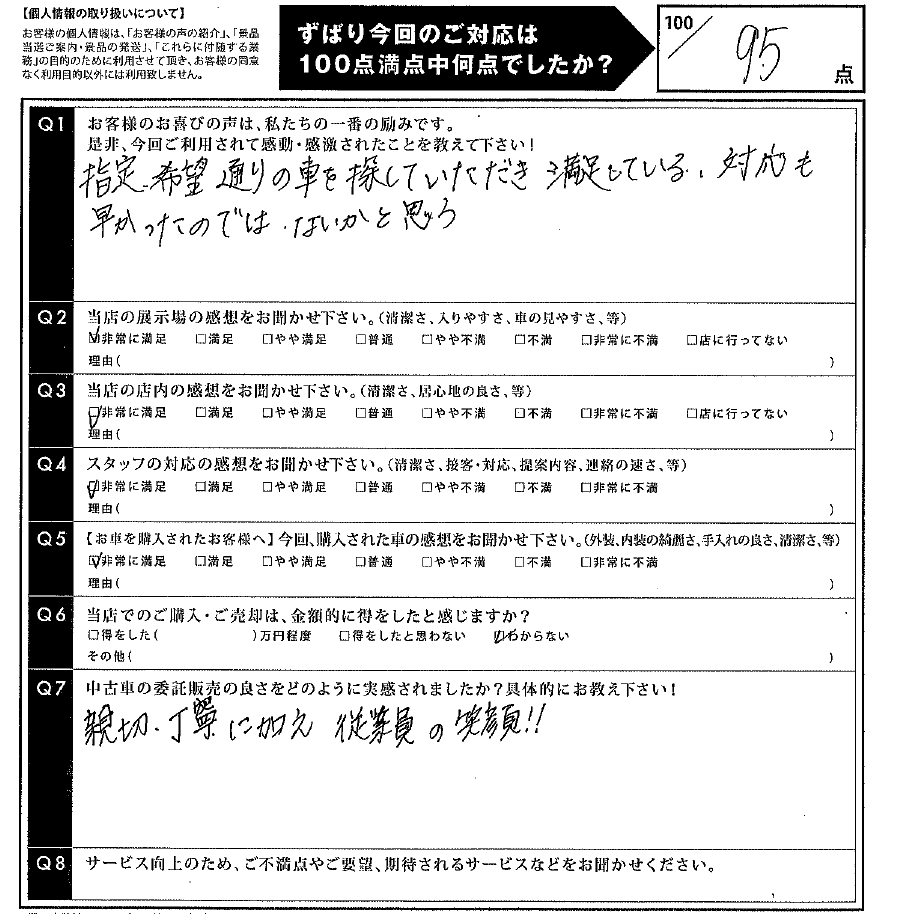 【個人情報の取り扱いについて】
お客様の個人情報は、「お客様の声の紹介」、「景品
当選ご案内・景品の発送」、「これらに付随する業
務」の目的のために利用させて頂き、お客様の同意
なく利用目的以外には利用致しません。
ずばり今回のご対応は
100点満点中何点でしたか？
100 95 点
Q1 お客様のお喜びの声は、私たちの一番の励みです。
是非、今回ご利用されて感動・感激されたことを教えて下さい！
指定、希望通りの車を探していただき満足している。対応も
早かったのではないかと思う
Q2 当店の展示場の感想をお聞かせ下さい。（清潔さ、入りやすさ、車の見やすさ、等）
☑非常に満足 □満足 □やや満足 □普通 □やや不満 □不満 □非常に不満 □店に行ってない
理由（ ）
Q3 当店の店内の感想をお聞かせ下さい。（清潔さ、居心地の良さ、等）
☑非常に満足 □満足 □やや満足 □普通 □やや不満 □不満 □非常に不満 □店に行ってない
理由（ ）
Q4 スタッフの対応の感想をお聞かせ下さい。（清潔さ、接客・対応、提案内容、連絡の速さ、等）
☑非常に満足 □満足 □やや満足 □普通 □やや不満 □不満 □非常に不満
理由（ ）
Q5 【お車を購入されたお客様へ】今回、購入された車の感想をお聞かせ下さい。（外装、内装の綺麗さ、手入れの良さ、清潔さ、等）
☑非常に満足 □満足 □やや満足 □普通 □やや不満 □不満 □非常に不満
理由（ ）
Q6 当店でのご購入・ご売却は、金額的に得をしたと感じますか？
□得をした（ ）万円程度 □得をしたと思わない ☑わからない
その他（ ）
Q7 中古車の委託販売の良さをどのように実感されましたか？具体的にお教え下さい！
親切、丁寧に加え 従業員の笑顔!!
Q8 サービス向上のため、ご不満点やご要望、期待されるサービスなどをお聞かせください。